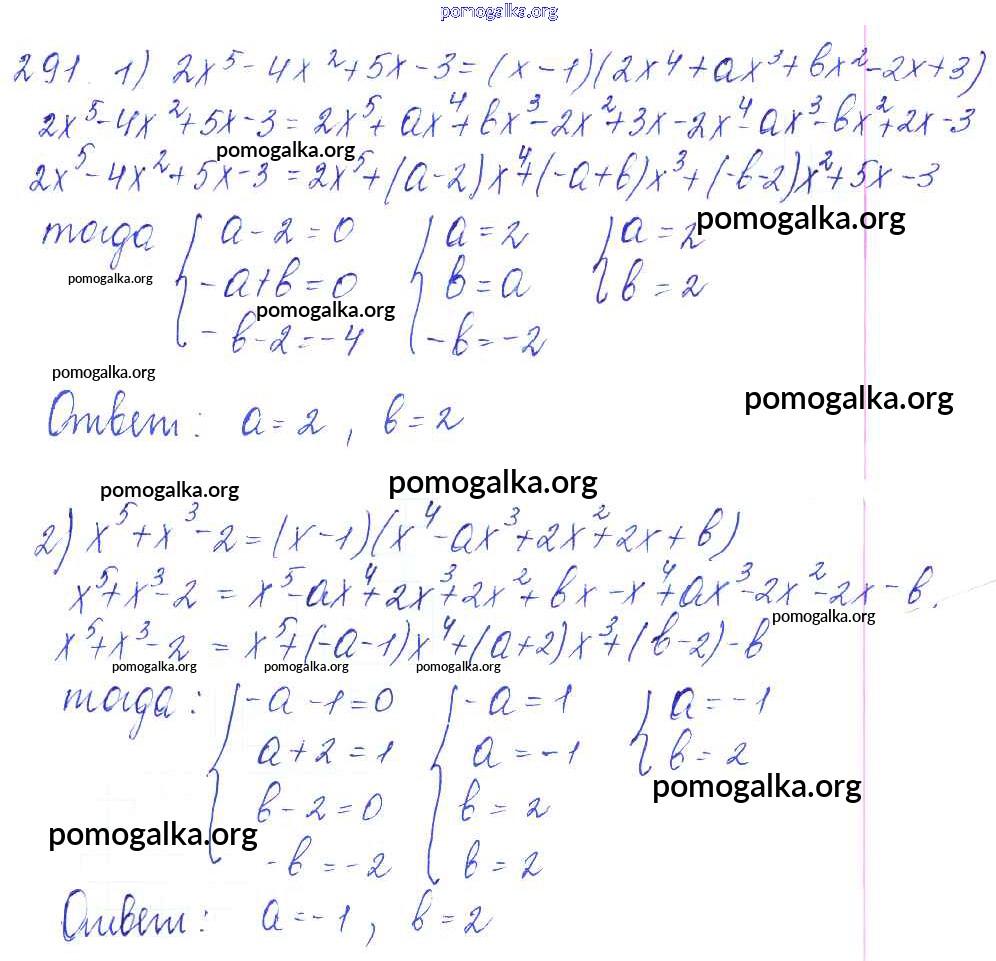 pomogalka.org
291. 1) 2x⁵ - 4x² + 5x - 3 = (x - 1)(2x⁴ + ax³ + bx² - 2x + 3)
2x⁵ - 4x² + 5x - 3 = 2x⁵ + ax⁴ + bx³ - 2x² + 3x - 2x⁴ - ax³ - bx² + 2x - 3
pomogalka.org
2x⁵ - 4x² + 5x - 3 = 2x⁵ + (a - 2)x⁴ + (-a + b)x³ + (-b - 2)x² + 5x - 3
pomogalka.org
тогда { a - 2 = 0 { a = 2 { a = 2
pomogalka.org
-a + b = 0 b = a b = 2
pomogalka.org
-b - 2 = -4 -b = -2
pomogalka.org
pomogalka.org
Ответ: a = 2, b = 2
pomogalka.org
pomogalka.org
2) x⁵ + x³ - 2 = (x - 1)(x⁴ - ax³ + 2x² + 2x + b)
x⁵ + x³ - 2 = x⁵ - ax⁴ + 2x³ + 2x² + bx - x⁴ + ax³ - 2x² - 2x - b.
pomogalka.org
x⁵ + x³ - 2 = x⁵ + (-a - 1)x⁴ + (a + 2)x³ + (b - 2) - b
pomogalka.org pomogalka.org pomogalka.org
тогда: { -a - 1 = 0 { -a = 1 { a = -1
a + 2 = 1 a = -1 b = 2
pomogalka.org
b - 2 = 0 b = 2
pomogalka.org
-b = -2 b = 2
Ответ: a = -1, b = 2